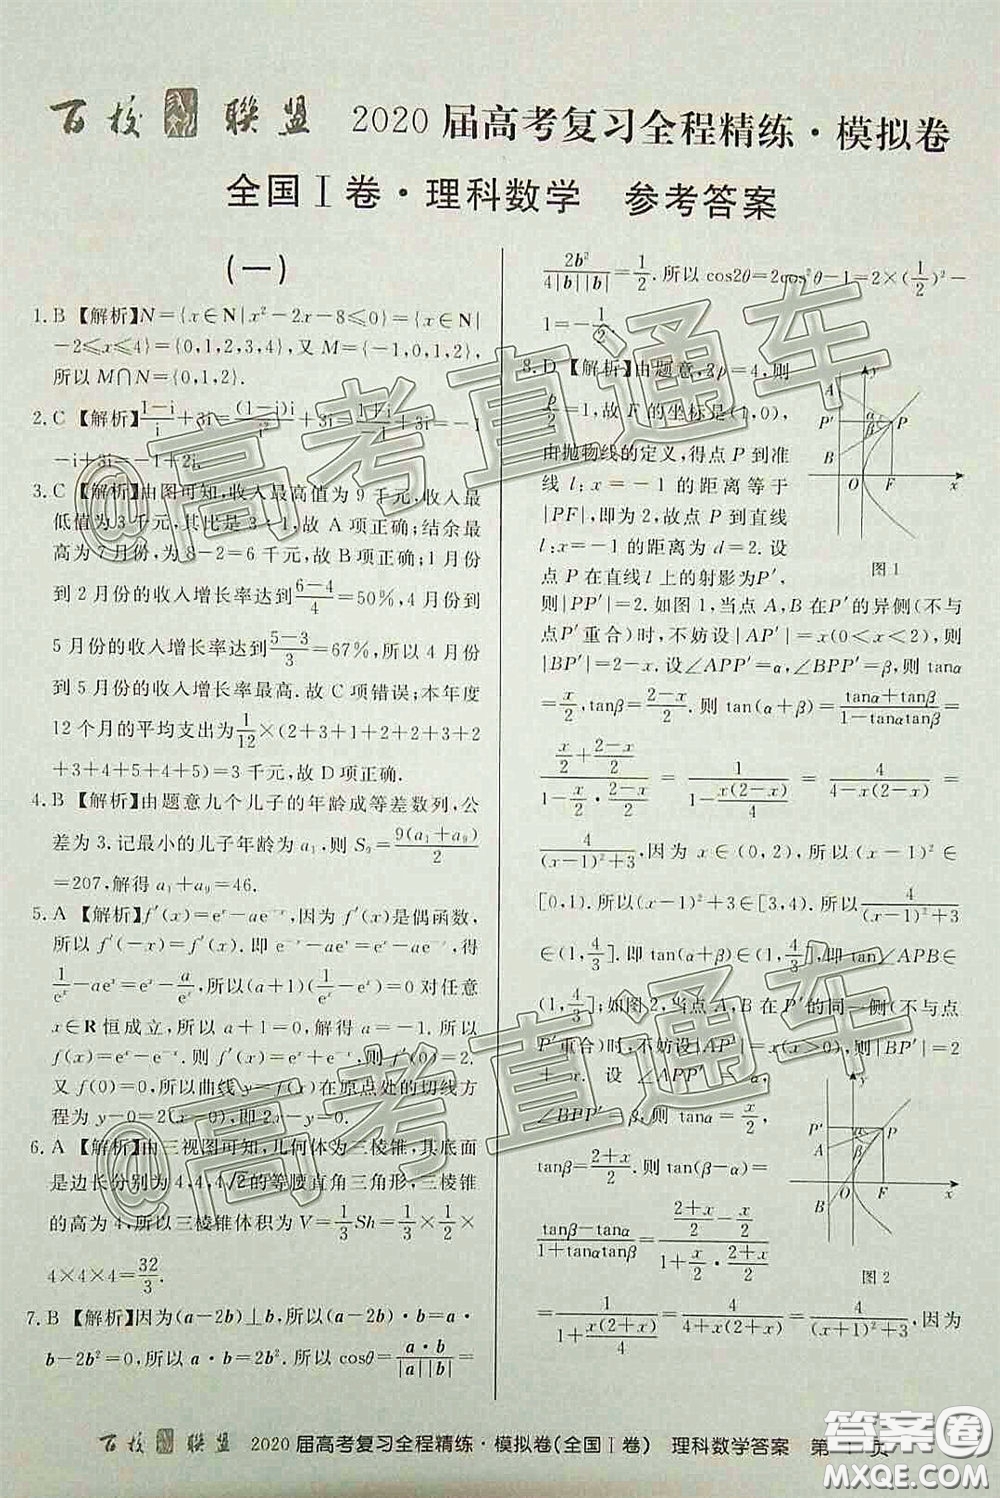 百校联盟 2020届高考复习全程精练·模拟卷
全国Ⅰ卷·理科数学 参考答案
(一)
1. B【解析】N={x∈N|x²-2x-8≤0}={x∈N|
-2≤x≤4}={0,1,2,3,4},又 M={-1,0,1,2},
所以 M∩N={0,1,2}.
2. C【解析】(1-i)/i+3i=
-i+3i=-1+2i.
3. C【解析】由图可知,收入最高值为 9 千元,收入最
低值为 3 千元,其比是 3∶1,故 A 项正确;结余最
高为 7 月份,为 8-2=6 千元,故 B 项正确;1 月份
到 2 月份的收入增长率达到(6-4)/4=50%,4 月份到
5 月份的收入增长率达到(5-3)/3=67%,所以 4 月份
到 5 月份的收入增长率最高.故 C 项错误;本年度
12 个月的平均支出为1/12×(2+3+1+2+3+2+
2+3+4+5+4+5)=3 千元,故 D 项正确.
4. B【解析】由题意九个儿子的年龄成等差数列,公
差为 3.记最小的儿子年龄为 a₁,则 S₉=9(a₁+a₉)/2
=207,解得 a₁+a₉=46.
5. A【解析】f′(x)=eˣ-ae⁻ˣ,因为 f′(x)是偶函数,
所以 f′(-x)=f′(x).即 e⁻ˣ-aeˣ=eˣ-ae⁻ˣ,得
1/eˣ-aeˣ=eˣ-a/eˣ,所以(a+1)(eˣ-1/eˣ)=0 对任意
x∈R 恒成立,所以 a+1=0,解得 a=-1.所以
f(x)=eˣ-e⁻ˣ.则 f′(x)=eˣ+e⁻ˣ.则 f′(0)=2.
又 f(0)=0,所以曲线 y=f(x)在原点处的切线方
程为 y-0=2(x-0),即 2x-y=0.
6. A【解析】由三视图可知,几何体为三棱锥,其底面
是边长分别为 4,4,4√2的等腰直角三角形,三棱锥
的高为 4,所以三棱锥体积为 V=1/3Sh=1/3×1/2×
4×4×4=32/3.
7. B【解析】因为(a-2b)⊥b,所以(a-2b)·b=a·
b-2b²=0,所以 a·b=2b².所以 cosθ=a·b/|a||b|=
2b²/4|b||b|=1/2.所以 cos2θ=2cos²θ-1=2×(1/2)²-
1=-1/2.
8. D【解析】由题意,2p=4,则
p/2=1,故 F 的坐标是(1,0),
由抛物线的定义,得点 P 到准
线 l:x=-1 的距离等于
|PF|,即为 2,故点 P 到直线
l:x=-1 的距离为 d=2.设
点 P 在直线 l 上的射影为P′,
y
P′
P
α
β
B
O
F
x
图 1
则|PP′|=2.如图 1,当点 A,B 在P′的异侧(不与
点P′重合)时,不妨设|AP′|=x(0<x<2),则
|BP′|=2-x.设∠APP′=α,∠BPP′=β,则 tanα=
x/2,tanβ=(2-x)/2.则 tan(α+β)=(tanα+tanβ)/(1-tanαtanβ)
=(x/2+(2-x)/2)/(1-x/2·(2-x)/2)=1/(1-x(2-x)/4)=4/(4-x(2-x))=
4/((x-1)²+3),因为 x∈(0,2),所以(x-1)²∈
[0,1).所以(x-1)²+3∈[3,4).所以4/((x-1)²+3)
∈(1,4/3].即 tan(α+β)∈(1,4/3],即tan∠APB∈
(1,4/3];如图 2,当点 A,B 在P′的同一侧(不与点
P′重合)时,不妨设|AP′|=x(x>0),则|BP′|=2
+x.设∠APP′=α,
∠BPP′=β,则 tanα=x/2,
tanβ=(2+x)/2.则 tan(β-α)=
(tanβ-tanα)/(1+tanαtanβ)=((2+x)/2-x/2)/(1+x/2·(2+x)/2)
y
P′
P
B
O
F
x
图 2
=1/(1+x(2+x)/4)=4/(4+x(2+x))=4/((x+1)²+3),因为
百校联盟 2020届高考复习全程精练·模拟卷(全国Ⅰ卷) 理科数学答案 第 1 页
@高考直通车
@高考直通车
答案圈
MXQE.COM